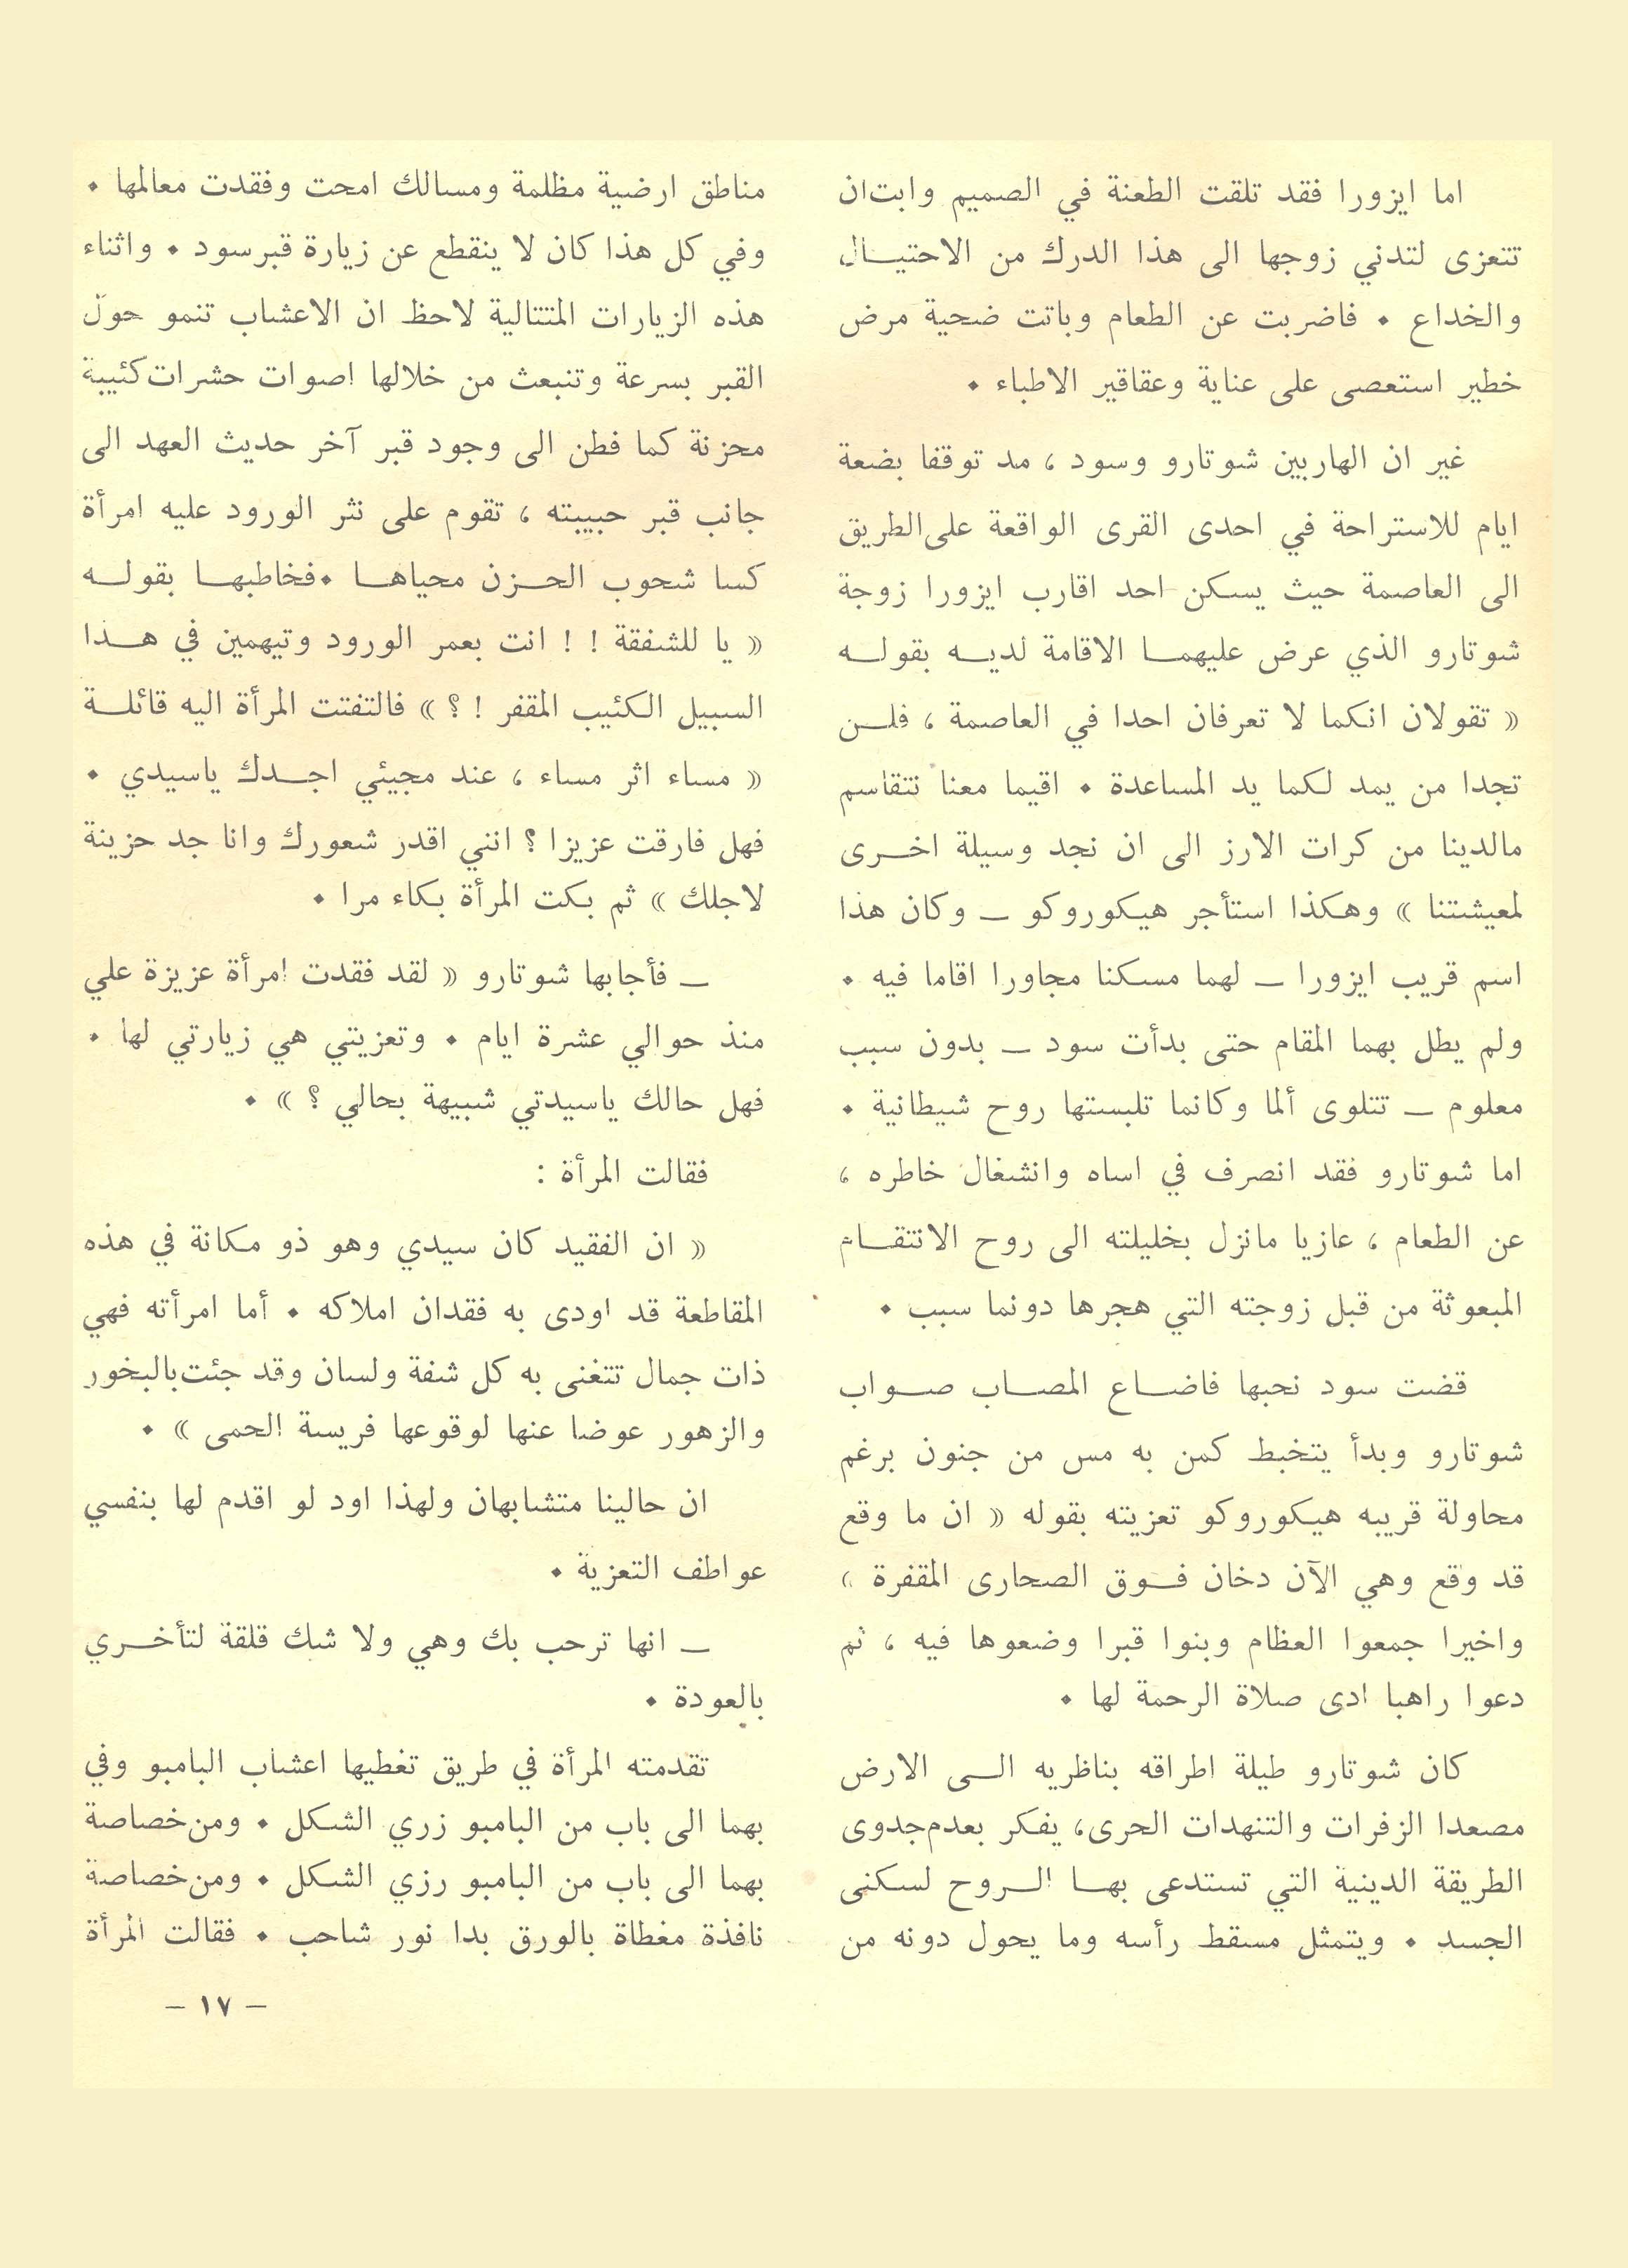 اما ايزورا فقد تلقت الطعنة في الصميم وابت ان
تتعزى لتدني زوجها الى هذا الدرك من الاحتيـال
والخداع ٠ فاضربت عن الطعام وباتت ضحية مرض
خطير استعصى على عناية وعقاقير الاطباء ٠
غير ان الهاربين شوتارو وسود ، مد توقفا بضعة
ايام للاستراحة في احدى القرى الواقعة على الطريق
الى العاصمة حيث يسكن احد اقارب ايزورا زوجة
شوتارو الذي عرض عليهمـا الاقامة لديـه بقولـه
« تقولان انكما لا تعرفان احدا في العاصمة ، فلـن
تجدا من يمد لكما يد المساعدة ٠ اقيما معنا نتقاسم
مالدينا من كرات الارز الى ان نجد وسيلة اخـرى
لمعيشتنا » وهكذا استأجر هيكوروكو ــ وكان هذا
اسم قريب ايزورا ــ لهما مسكنا مجاورا اقاما فيه ٠
ولم يطل بهما المقام حتى بدأت سود ــ بدون سبب
معلوم ــ تتلوى ألما وكانما تلبستها روح شيطانية ٠
اما شوتارو فقد انصرف في اساه وانشغال خاطره ،
عن الطعام ، عازيا مانزل بخليلته الى روح الانتقـام
المبعوثة من قبل زوجته التي هجرها دونما سبب ٠
قضت سود نحبها فاضـاع المصـاب صـواب
شوتارو وبدأ يتخبط كمن به مس من جنون برغم
محاولة قريبه هيكوروكو تعزيته بقوله « ان ما وقع
قد وقع وهي الآن دخان فـوق الصحارى المقفرة »
واخيرا جمعوا العظام وبنوا قبرا وضعوها فيه ، ثم
دعوا راهبا ادى صلاة الرحمة لها ٠
كان شوتارو طيلة اطراقه بناظريه الـى الارض
مصعدا الزفرات والتنهدات الحرى، يفكر بعدم جدوى
الطريقة الدينية التي تستدعى بهـا الـروح لسكنى
الجسد ٠ ويتمثل مسقط رأسه وما يحول دونه من
مناطق ارضية مظلمة ومسالك امحت وفقدت معالمها ٠
وفي كل هذا كان لا ينقطع عن زيارة قبر سود ٠ واثناء
هذه الزيارات المتتالية لاحظ ان الاعشاب تنمو حول
القبر بسرعة وتنبعث من خلالها اصوات حشرات كئيبة
محزنة كما فطن الى وجود قبر آخر حديث العهد الى
جانب قبر حبيبته ، تقوم على نثر الورود عليه امرأة
كسا شحوب الحـزن محياهـا ٠فخاطبهـا بقولـه
« يا للشفقة ! ! انت بعمر الورود وتيهمين في هـذا
السبيل الكئيب المقفر ! ؟ » فالتفتت المرأة اليه قائلـة
« مساء اثر مساء ، عند مجيئي اجـدك ياسيدي ٠
فهل فارقت عزيزا ؟ انني اقدر شعورك وانا جد حزينة
لاجلك » ثم بكت المرأة بكاء مرا ٠
ــ فأجابها شوتارو « لقد فقدت امرأة عزيزة علي
منذ حوالي عشرة ايام ٠ وتعزيتي هي زيارتي لها ٠
فهل حالك ياسيدتي شبيهة بحالي ؟ » ٠
فقالت المرأة :
« ان الفقيد كان سيدي وهو ذو مكانة في هذه
المقاطعة قد اودى به فقدان املاكه ٠ أما امرأته فهي
ذات جمال تتغنى به كل شفة ولسان وقد جئت بالبخور
والزهور عوضا عنها لوقوعها فريسة الحمى » ٠
ان حالينا متشابهان ولهذا اود لو اقدم لها بنفسي
عواطف التعزية ٠
ــ انها ترحب بك وهي ولا شك قلقة لتأخـري
بالعودة ٠
تقدمته المرأة في طريق تغطيها اعشاب البامبو وفي
بهما الى باب من البامبو زري الشكل ٠ ومن خصاصة
بهما الى باب من البامبو رزي الشكل ٠ ومن خصاصة
نافذة مغطاة بالورق بدا نور شاحب ٠ فقالت المرأة
– ١٧ –